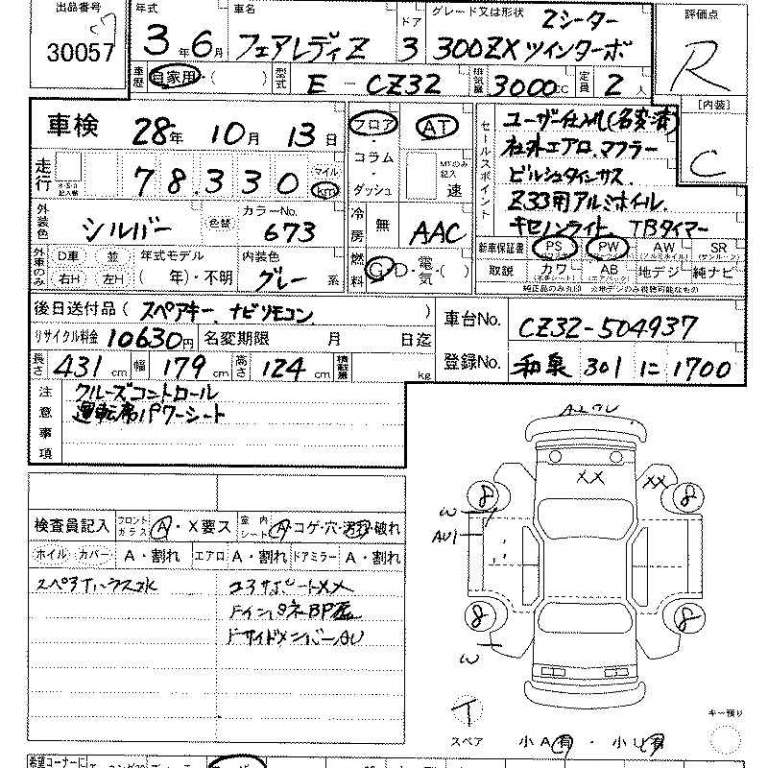 出品番号
30057
年式 車名 ドア グレード又は形状 2シーター 評価点
3年6月 フェアレディZ 3 300ZXツインターボ R
車歴 自家用・( ) 型式 E-CZ32 排気量 3000cc 定員 2人
[内装]
C
車検 28年10月13日
走行 78.330 マイル km
フロア・コラム・ダッシュ
AT
MTのみ記入 速
セールスポイント
ユーザー仕入れ(名変済)
社外エアロ.マフラー
ビルシュタインサス.
Z33用アルミホイル.
キセノンライト TBタイマー
外装色 シルバー 色替 カラーNo. 673
冷房 無 AAC
新車保証書 PS PW AW SR
取説 カワ AB 地デジ 純ナビ
純正品のみ丸印 ☆地デジのみ視聴可能なもの
外車のみ D車 並 右H 左H
年式モデル ( 年)・不明
内装色 グレー系
燃料 G・D・電気・( )
後日送付品( スペアキー.ナビリモコン. )
リサイクル料金 10630円 名変期限 月 日迄
車台No. CZ32-504937
長さ 431cm 幅 179cm 高さ 124cm 積載量 kg
登録No. 和泉 301 に 1700
注意事項
クルーズコントロール
運転席パワーシート
検査員記入 フロントガラス A・X要ス 室内シート A・コゲ・穴・破れ
ホイル カバー A・割れ エアロ A・割れ ドアミラー A・割れ
コアサポートXX
XX XX
8 8
W
AU1
8 8
W
T
スペア 小A有・小U有
キー預り
希望コーナーに